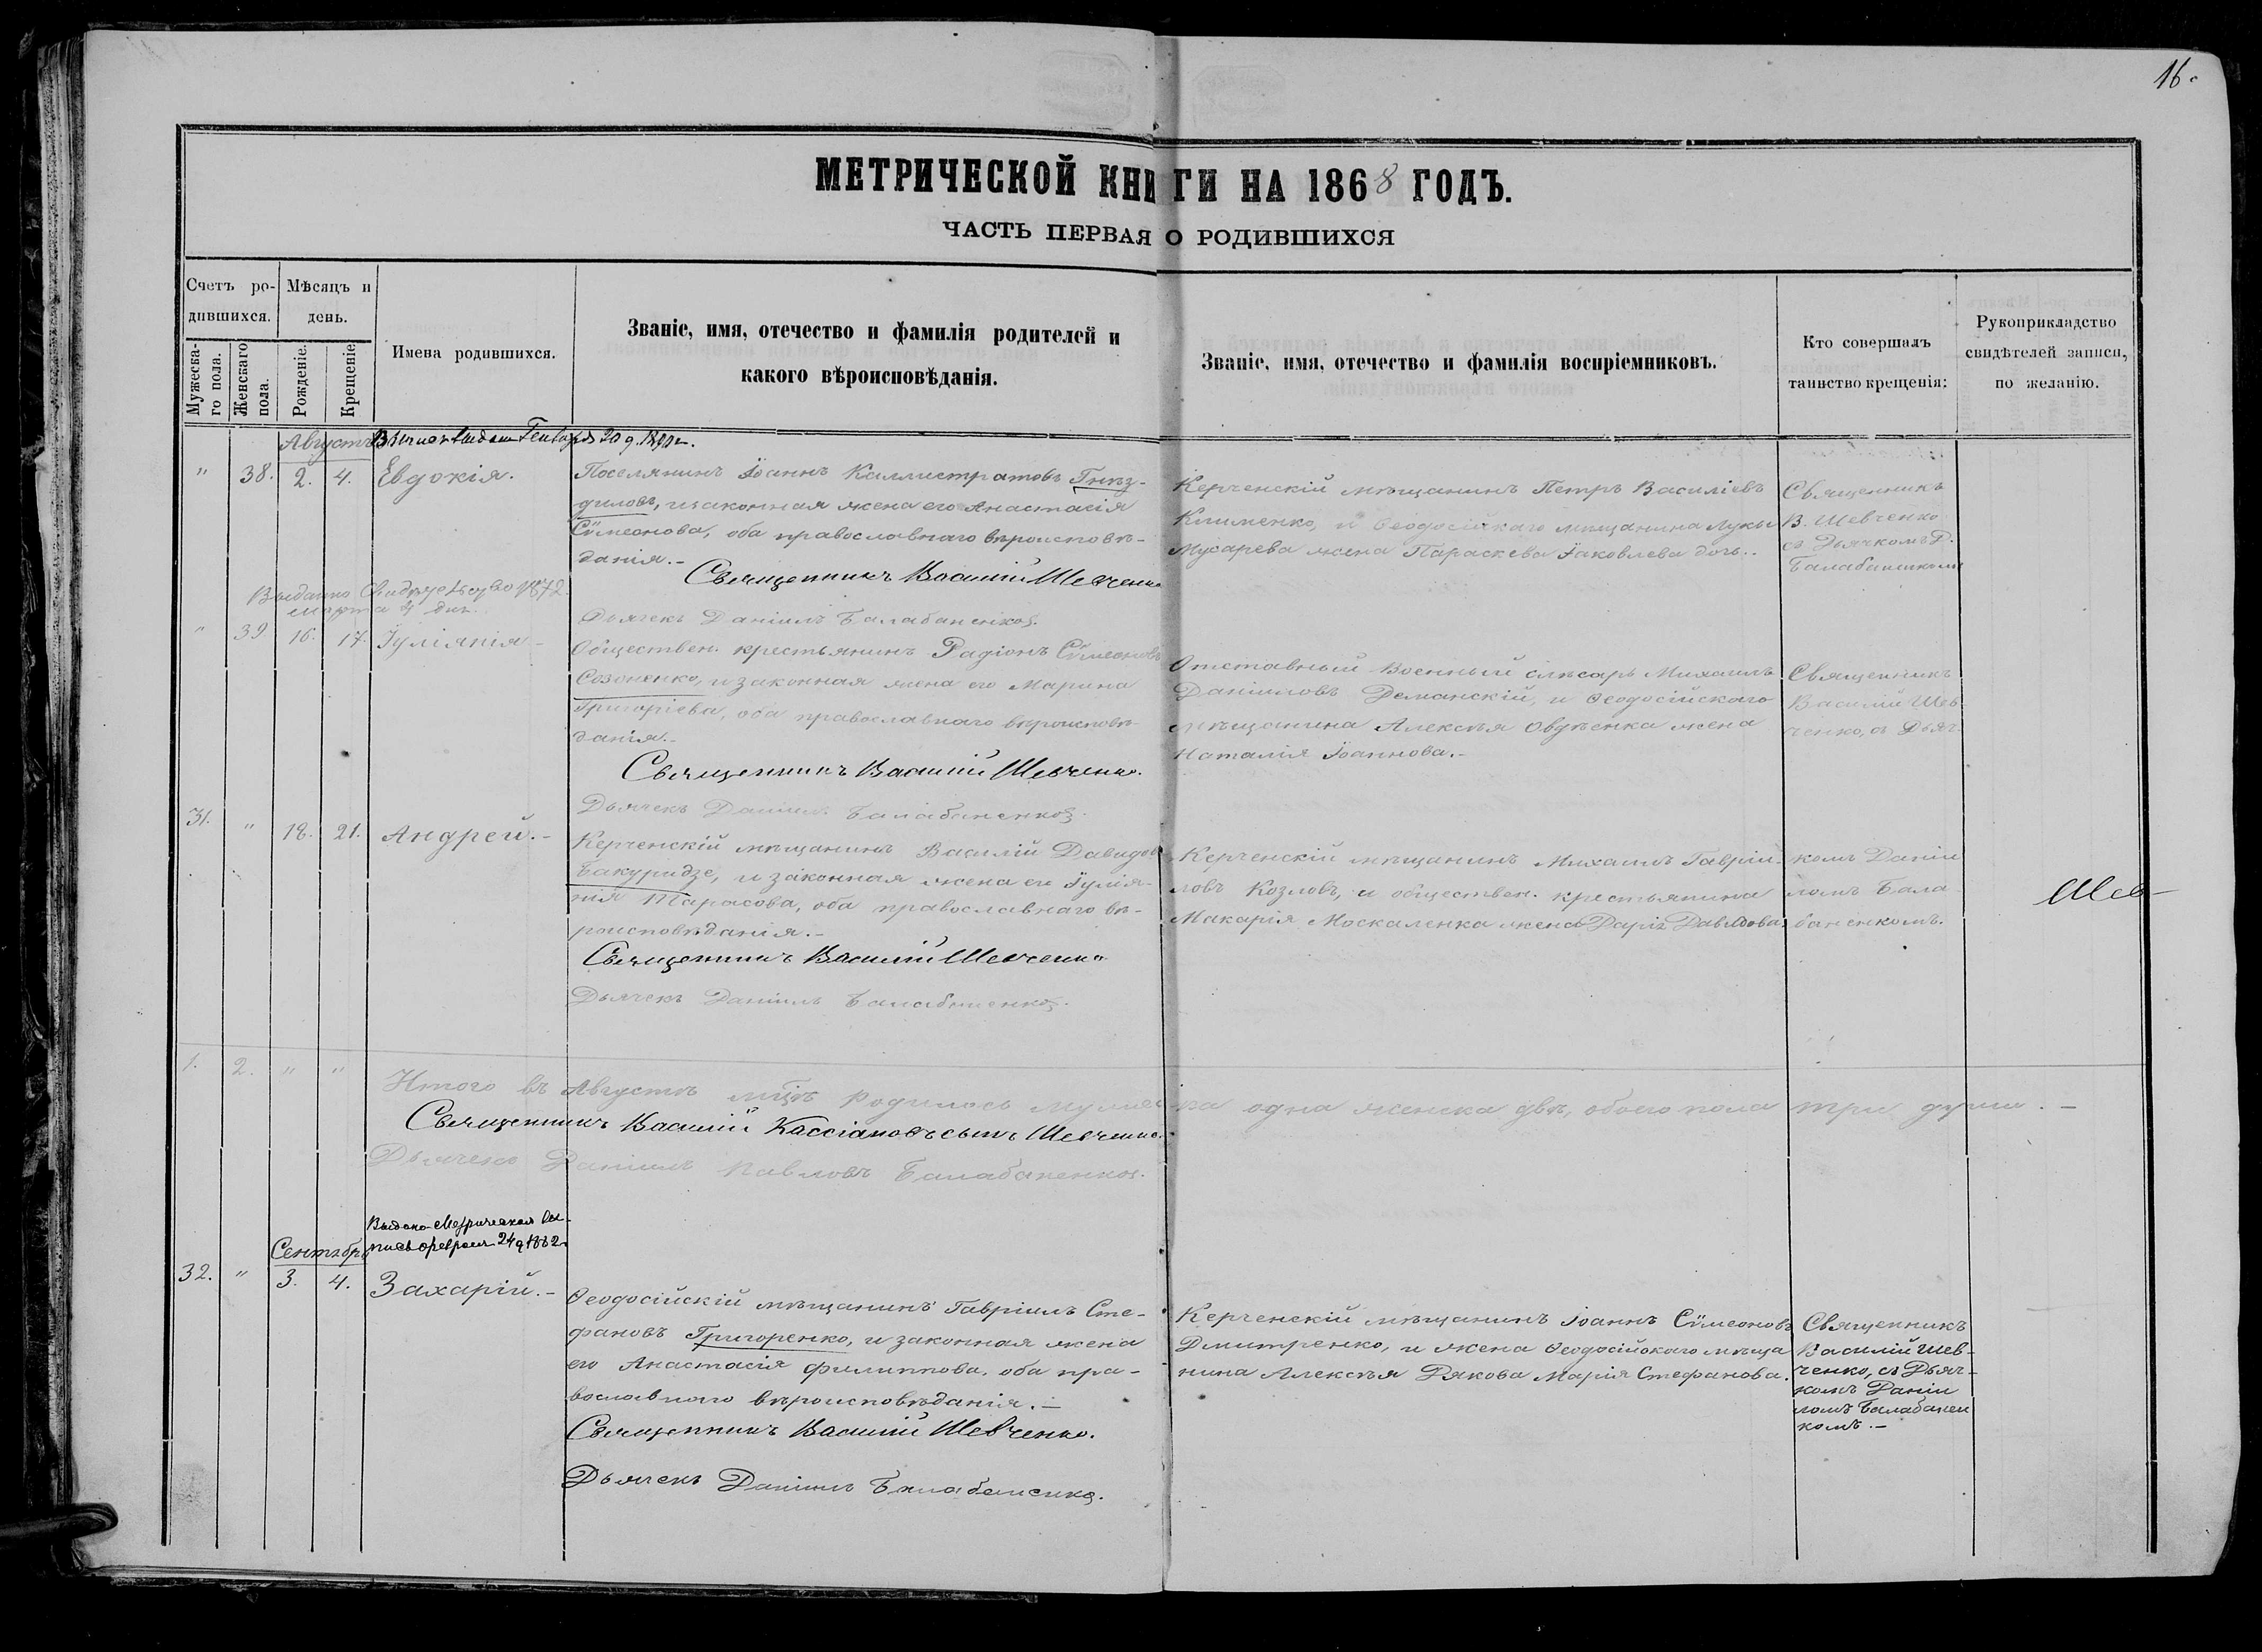 16.
МЕТРИЧЕСКОЙ КНИГИ НА 1868 ГОДЪ.
ЧАСТЬ ПЕРВАЯ О РОДИВШИХСЯ
Счетъ ро-
дившихся.
Мужеска-
го пола.
Женскаго
пола.
Мѣсяцъ и
день.
Рожденіе.
Крещеніе.
Имена родившихся.
Званіе, имя, отечество и фамилія родителей и
какого вѣроисповѣданія.
Званіе, имя, отечество и фамилія воспріемниковъ.
Кто совершалъ
таинство крещенія:
Рукоприкладство
свидѣтелей записи,
по желанію.
Августъ
" 38. 2. 4. Евдокія.
Поселянинъ Іоаннъ Каллистратовъ Гнѣз-
диловъ, и законная жена его Анастасія
Сѵмеонова, оба православнаго вѣроисповѣ-
данія.-
Священникъ Василій Шевченко
Дьячекъ Даніилъ Балабаненко.
Керченскій мѣщанинъ Петръ Василіевъ
Клименко, и Ѳеодосійскаго мѣщанина Луки
Мусарева жена Параскева Іаковлева дочь.
Священникъ
В. Шевченко
съ Дьячкомъ Д.
Балабаненкомъ
Выдано Свидѣтельство 1872
марта 4 дня.
" 39 16. 17. Іуліанія-
Обществен. крестьянинъ Радіонъ Сѵмеоновъ
Созоненко, и законная жена его Марина
Григоріева, оба православнаго вѣроисповѣ-
данія.-
Священникъ Василій Шевченко.
Дьячекъ Даніилъ Балабаненко.
Отставный Военный слѣсарь Михаилъ
Даніиловъ Деманскій, и Ѳеодосійскаго
мѣщанина Алексѣя Овдѣенка жена
Наталія Іоаннова.-
Священникъ
Василій Шев-
ченко, съ Дьяч-
31. " 18. 21. Андрей.-
Керченскій мѣщанинъ Василій Давидовъ
Бакуридзе, и законная жена его Іуліа-
нія Тарасова, оба православнаго вѣ-
роисповѣданія.-
Священникъ Василій Шевченко
Дьячекъ Даніилъ Балабаненко.
Керченскій мѣщанинъ Михаилъ Гавріи-
ловъ Козловъ, и обществен. крестьянина
Макарія Москаленка жена Дарія Давидова.
комъ Даніи
ломъ Бала-
баненкомъ.
Шев-
1. 2. " "
Итого въ Августѣ мцѣ родилось мужеска одна женска двѣ, обоего пола три души.-
Священникъ Василій Кассіановъ сынъ Шевченко.
Дьячекъ Даніилъ Павловъ Балабаненко.
Выдано Метрическая Вы-
пись февраля 24 д 1882
Сентябрь
32. " 3. 4. Захарій.-
Ѳеодосійскій мѣщанинъ Гавріилъ Сте-
фановъ Григоренко, и законная жена
его Анастасія Филиппова, оба пра-
вославнаго вѣроисповѣданія.-
Священникъ Василій Шевченко.
Дьячекъ Даніилъ Балабаненко.
Керченскій мѣщанинъ Іоаннъ Сѵмеоновъ
Дмитренко, и жена Ѳеодосійскаго мѣща
нина Алексѣя Рякова Марія Стефанова.
Священникъ
Василій Шев-
ченко, съ Дьяч-
комъ Даніи
ломъ Балабанен
комъ.-